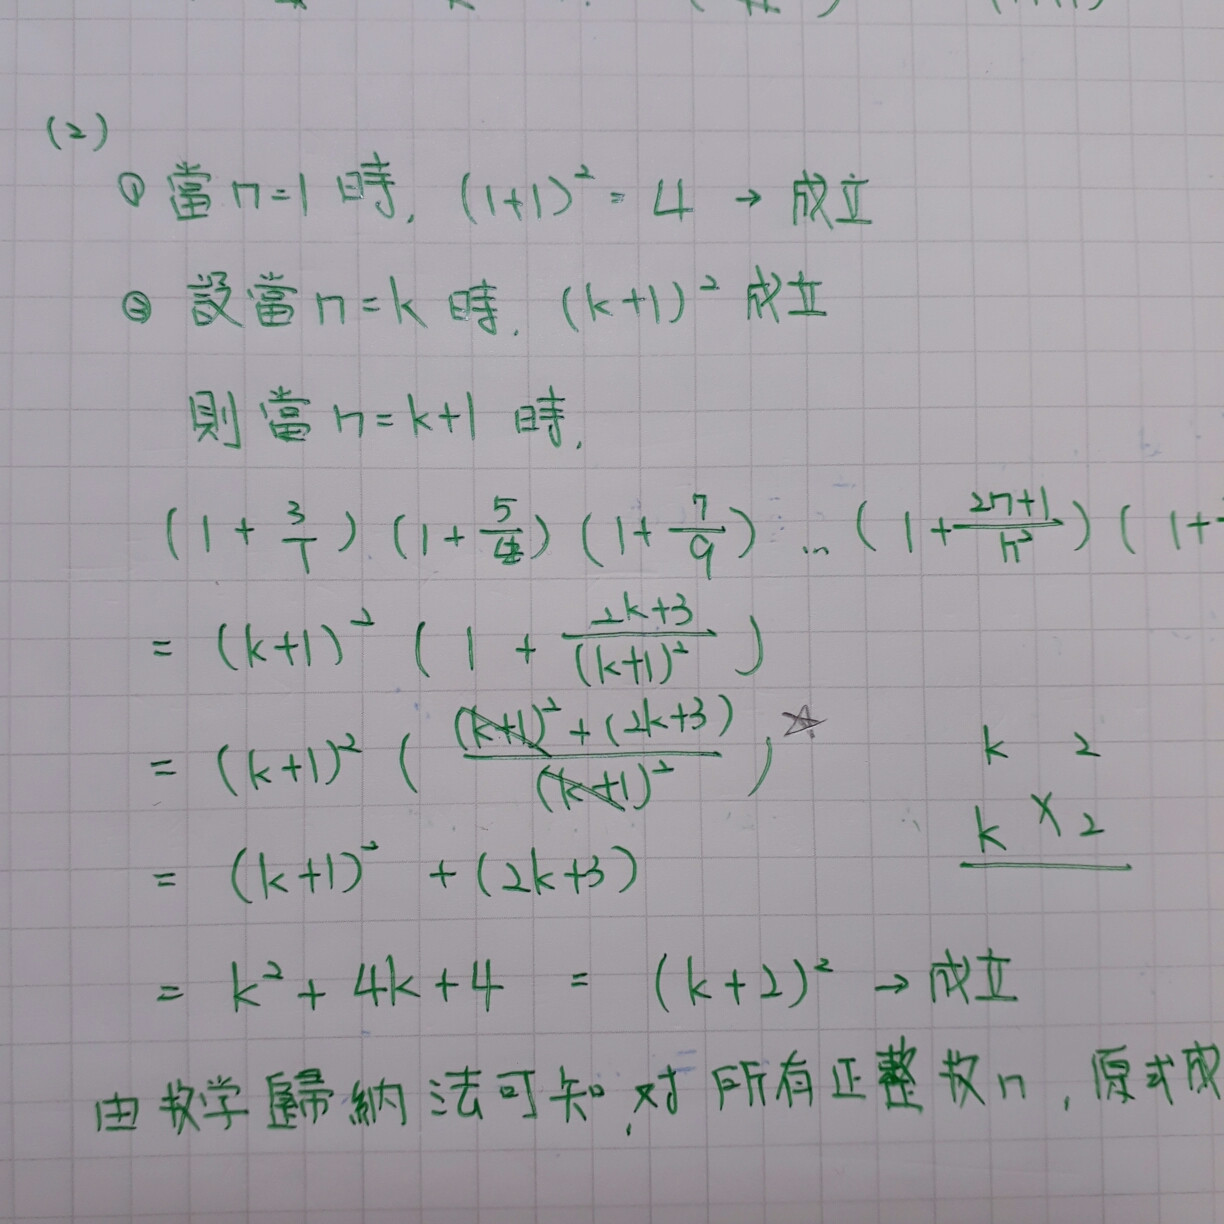 (2)
① 當 n=1 時, (1+1)² = 4 → 成立
② 設當 n=k 時, (k+1)² 成立
則當 n=k+1 時,
(1+3/1)(1+5/4)(1+7/9)...(1+(2n+1)/n²)(1+
= (k+1)² (1 + (2k+3)/(k+1)²)
= (k+1)² (((k+1)²+(2k+3))/(k+1)²) ☆
k 2
k × 2
= (k+1)² + (2k+3)
= k² + 4k + 4 = (k+2)² → 成立
由数学歸納法可知,对所有正整数n,原式成